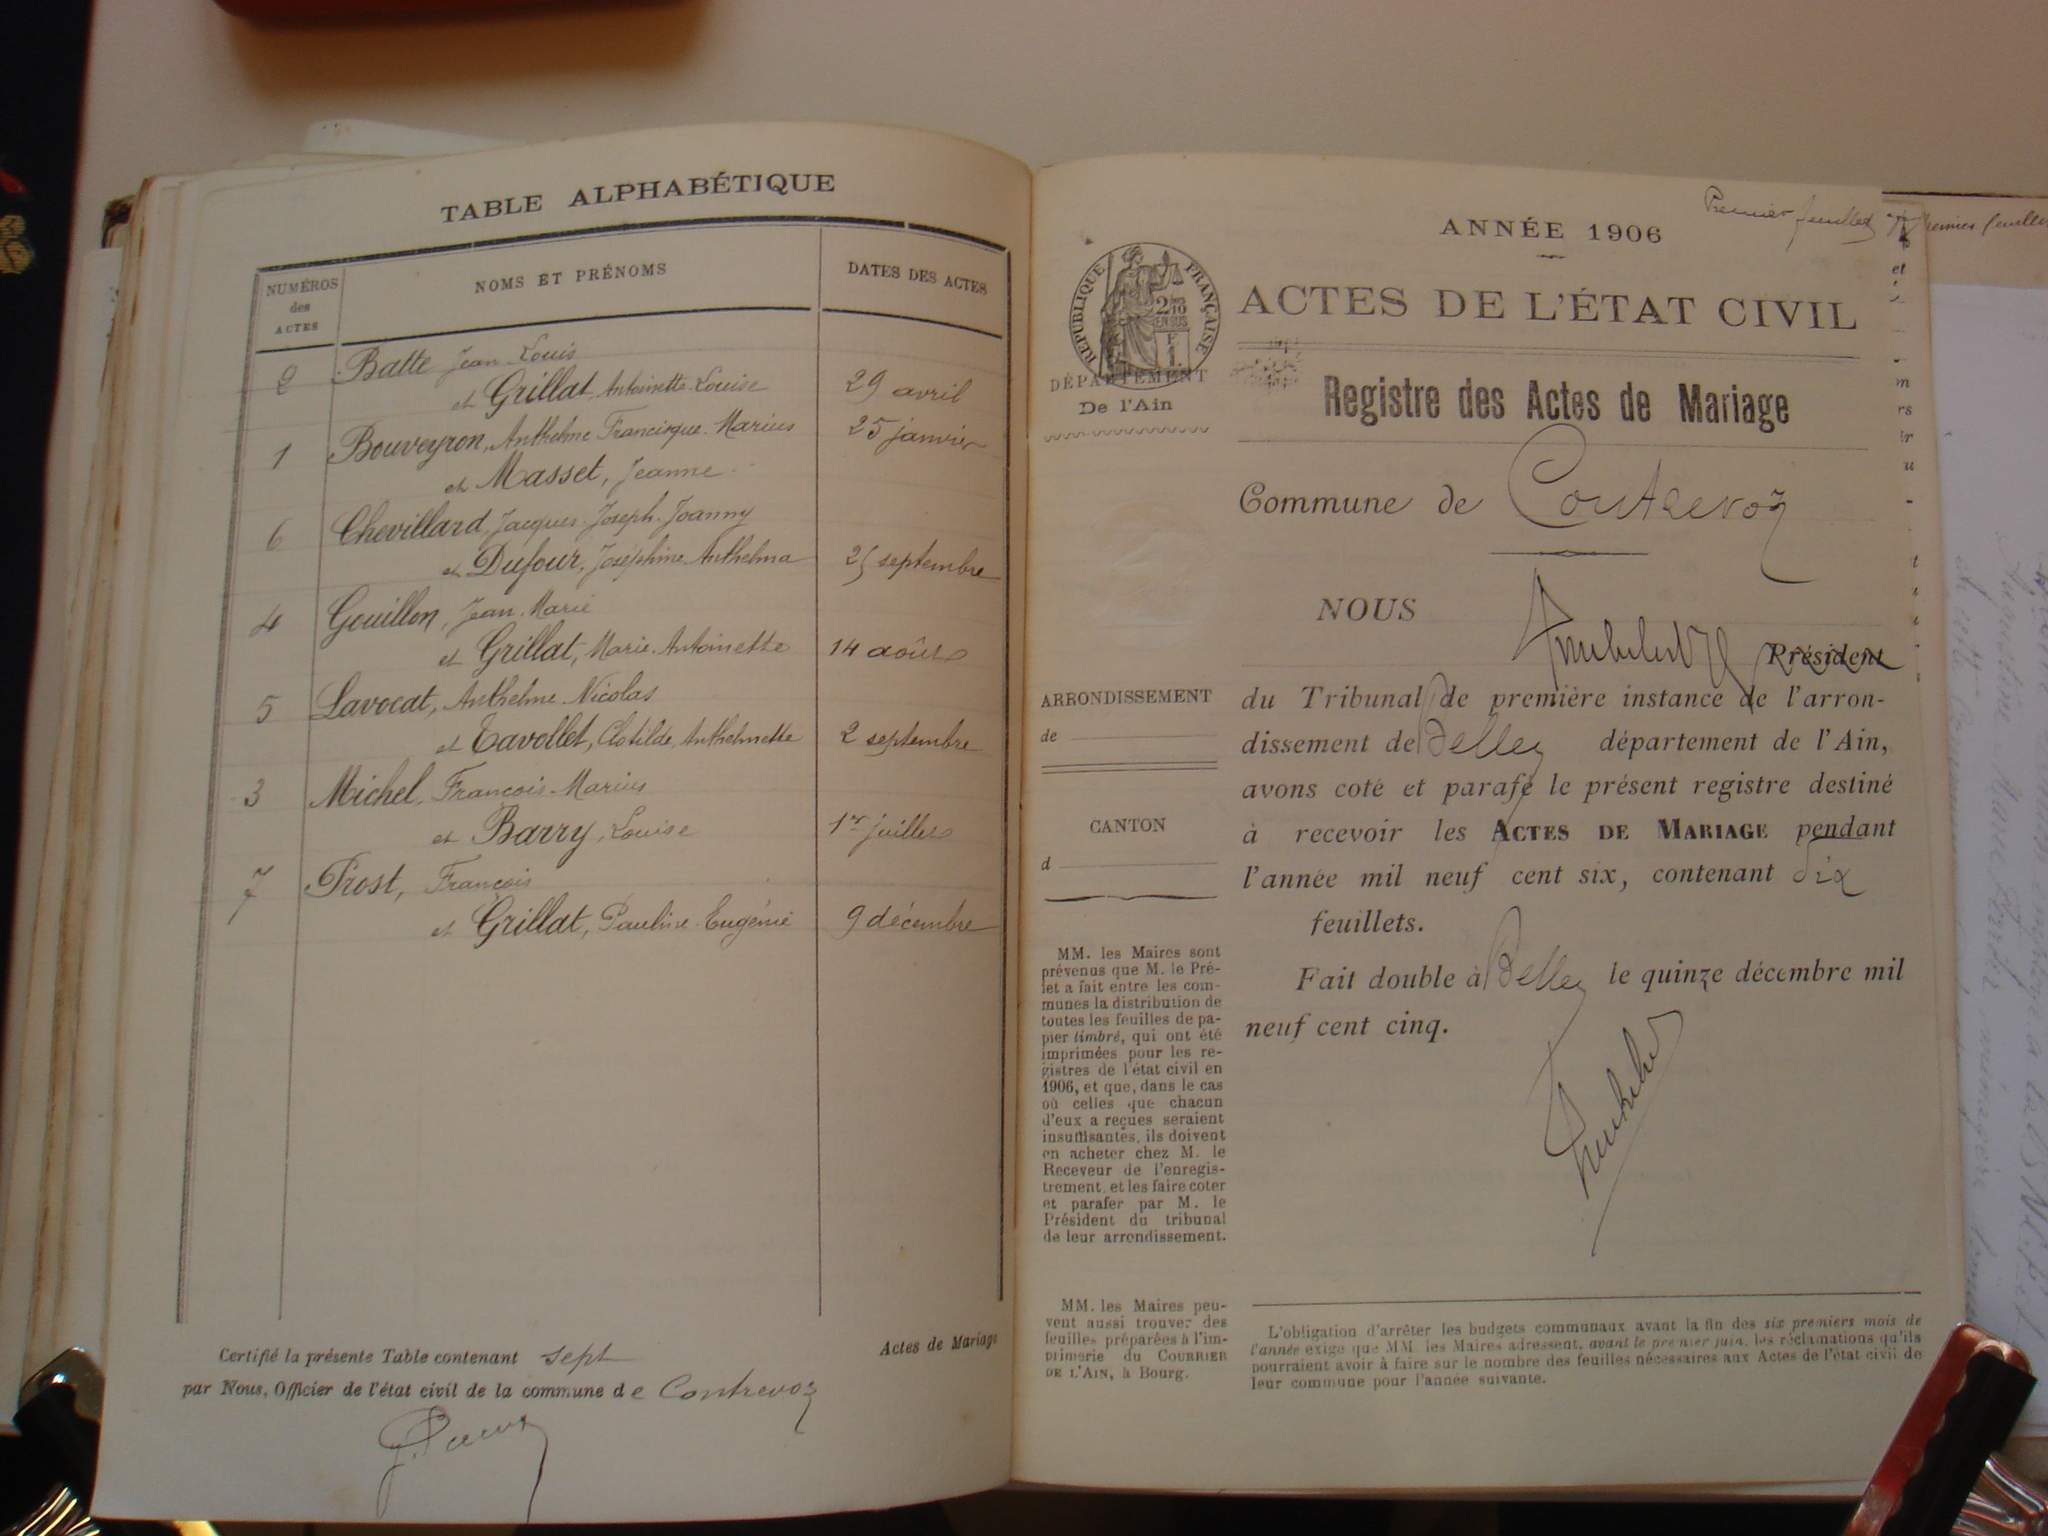 TABLE ALPHABÉTIQUE
NUMÉROS des ACTES
NOMS ET PRÉNOMS
DATES DES ACTES
2 Batte Jean-Louis
et Grillat, Antoinette-Louise 29 avril
1 Bouveyron, Anthelme Francisque-Marius 25 janvier
et Masset, Jeanne
6 Chevillard, Jacques-Joseph-Joanny
et Dufour, Joséphine-Anthelma 25 septembre
4 Gouillon, Jean-Marie
et Grillat, Marie-Antoinette 14 août
5 Lavocat, Anthelme-Nicolas
et Tavollet, Clotilde, Anthelmette 2 septembre
3 Michel, François-Marius
et Barry, Louise 1er juillet
7 Prost, François
et Grillat, Pauline-Eugénie 9 décembre
Actes de Mariage
Certifié la présente Table contenant sept
par Nous, Officier de l'état civil de la commune de Contrevoz
Premier feuillet
Premier feuillet
ANNÉE 1906
RÉPUBLIQUE FRANÇAISE
2/10 EN SUS
ACTES DE L'ÉTAT CIVIL
DÉPARTEMENT
De l'Ain
Registre des Actes de Mariage
Commune de Contrevoz
NOUS
Président
du Tribunal de première instance de l'arron-
dissement de Belley département de l'Ain,
avons coté et parafé le présent registre destiné
à recevoir les ACTES DE MARIAGE pendant
l'année mil neuf cent six, contenant dix
feuillets.
Fait double à Belley le quinze décembre mil
neuf cent cinq.
ARRONDISSEMENT
de
CANTON
d
MM. les Maires sont
prévenus que M. le Pré-
fet a fait entre les com-
munes la distribution de
toutes les feuilles de pa-
pier timbré, qui ont été
imprimées pour les re-
gistres de l'état civil en
1906, et que, dans le cas
où celles que chacun
d'eux a reçues seraient
insuffisantes, ils doivent
en acheter chez M. le
Receveur de l'enregis-
trement, et les faire coter
et parafer par M. le
Président du tribunal
de leur arrondissement.
MM. les Maires peu-
vent aussi trouver des
feuilles préparées à l'im-
primerie du COURRIER
DE L'AIN, à Bourg.
L'obligation d'arrêter les budgets communaux avant la fin des six premiers mois de
l'année exige que MM. les Maires adressent, avant le premier juin, les réclamations qu'ils
pourraient avoir à faire sur le nombre des feuilles nécessaires aux Actes de l'état civil de
leur commune pour l'année suivante.